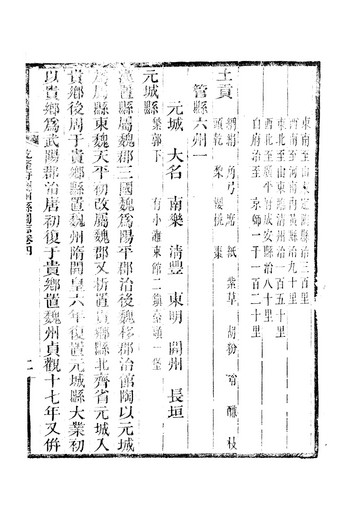 東南至山東定陶縣治三百里
西南至河南内黃縣治九十里
東北至山東清州治一百五十里
西北至廣平府成安縣治八十里
自府治至 京師一千一百二十里
土貢
綢 絹 角弓 席 紙 紫草 胡粉
頭 梨 櫻桃 棗
管縣六州一
元城 大名 南樂 清豐 東明 開州 長垣
元城縣 繁 郭下 有小灘東館二鎮 頭一堡
漢置縣屬魏郡三國魏爲陽平郡治後魏移郡治館陶以元城
屬縣東魏天平初改屬魏郡又析置貴鄉縣北齊省元城入
貴鄉後周于貴鄉縣置魏州隋開皇六年復置元城縣大業初
以貴鄉爲武陽郡治唐初復于貴鄉置魏州貞觀十七年又併